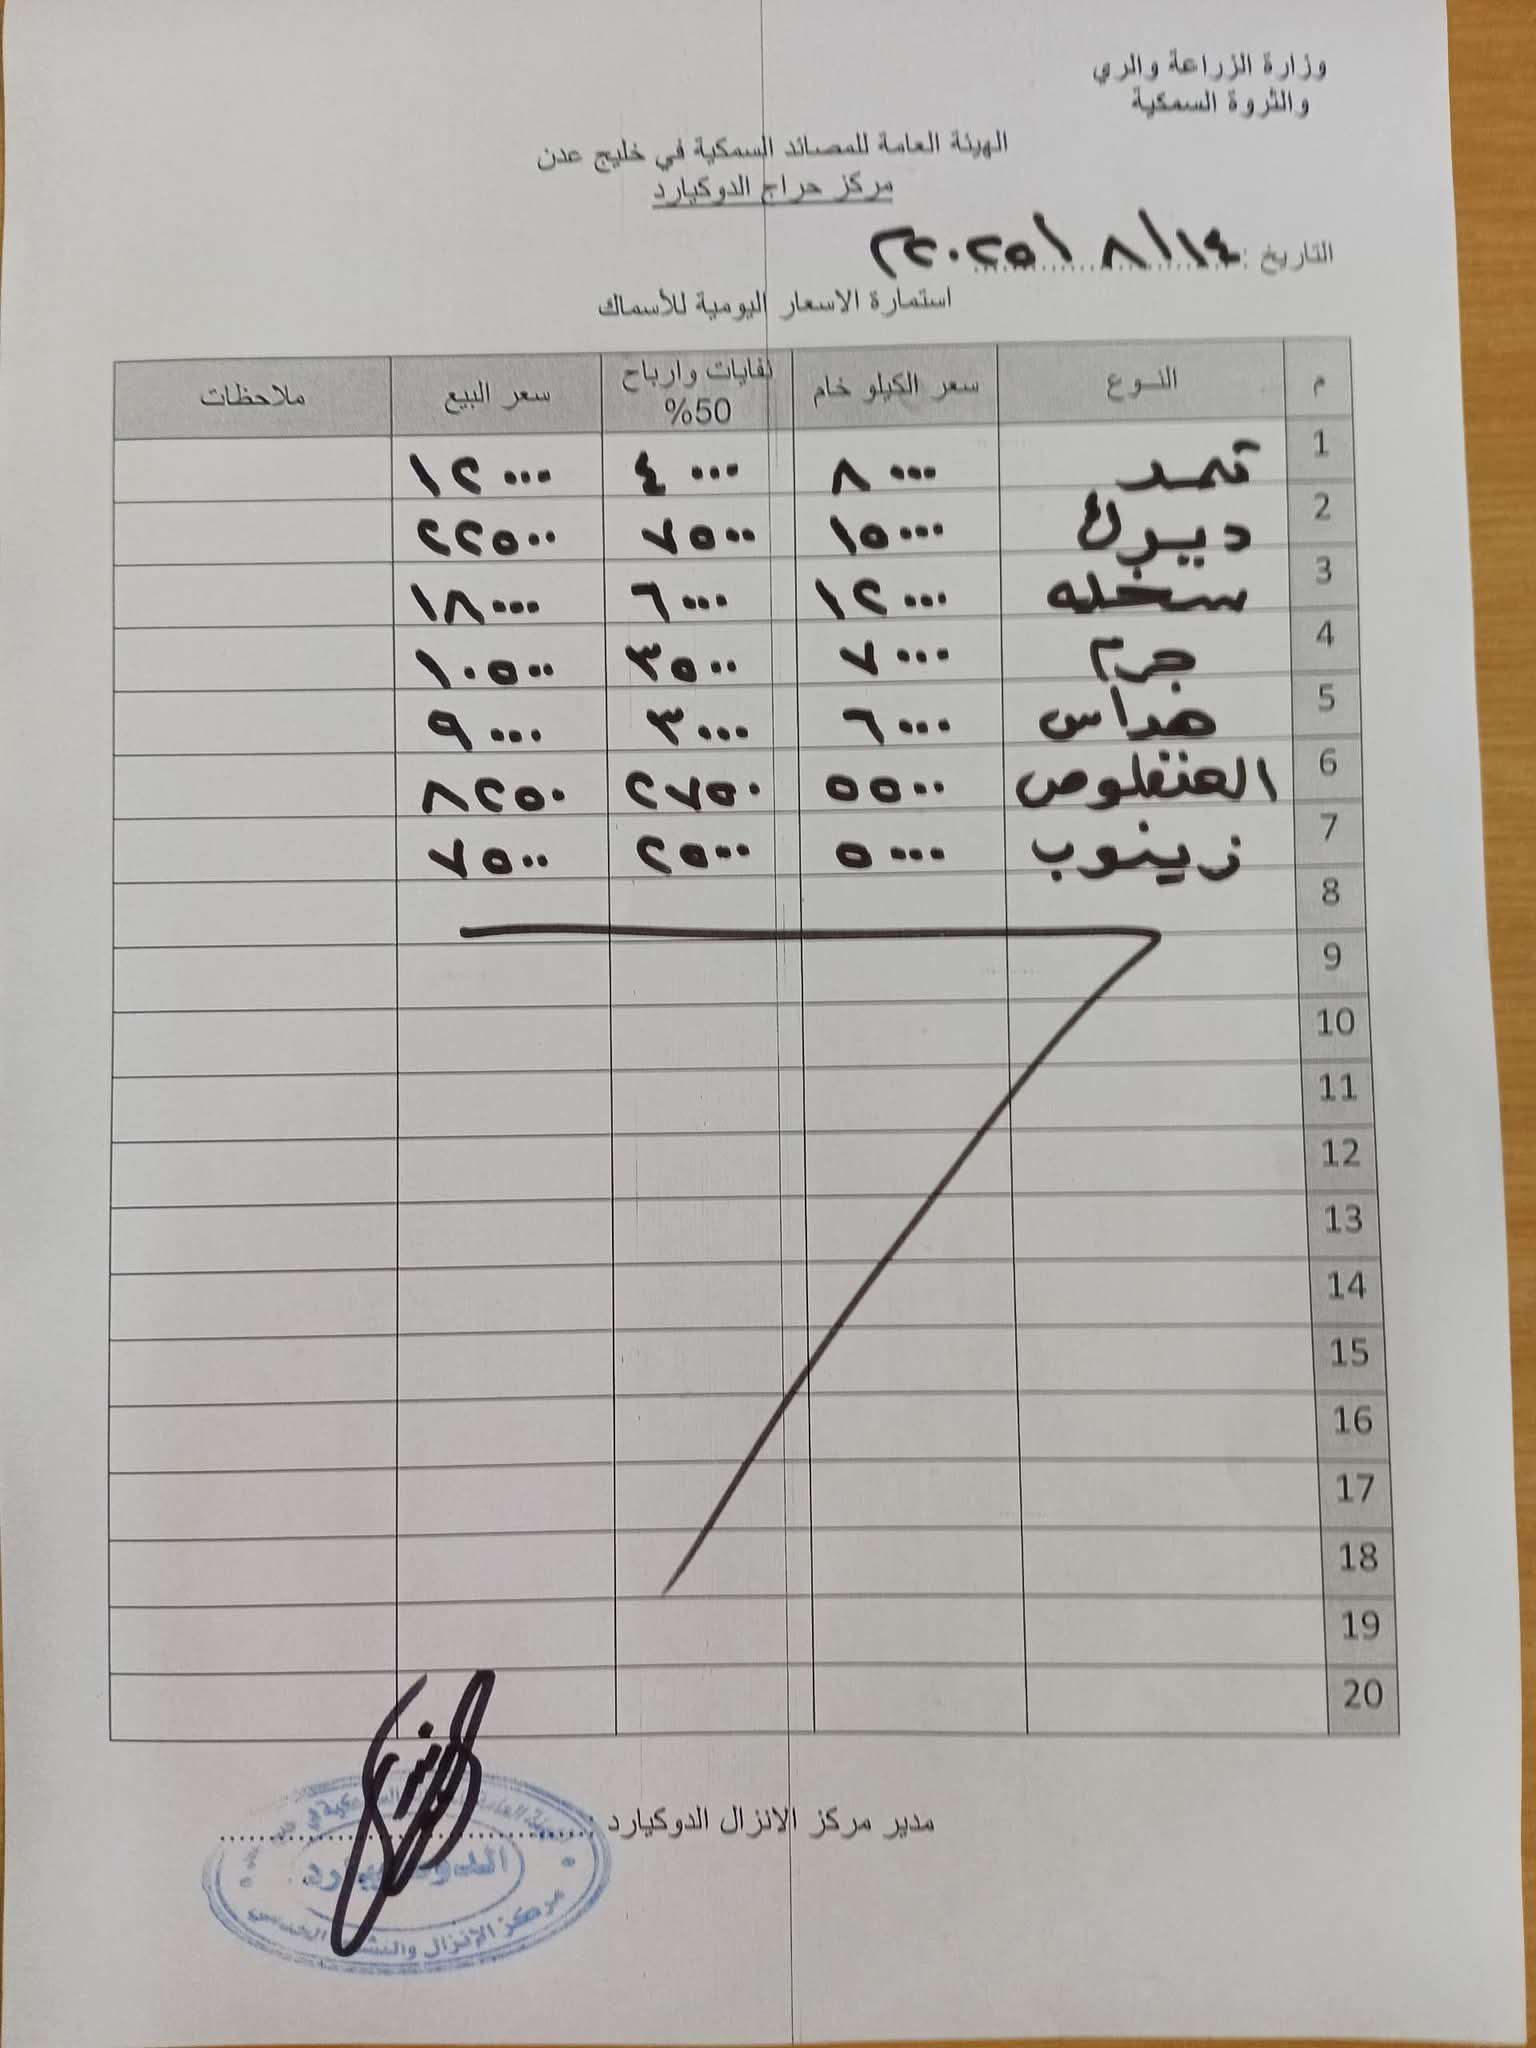 وزارة الزراعة والري
والثروة السمكية
الهيئة العامة للمصائد السمكية في خليج عدن
مركز حراج الدوكيارد
التاريخ: ١٤/ ٨/ ٢٠٢٥م
استمارة الاسعار اليومية للأسماك
م النوع سعر الكيلو خام نفايات وارباح 50% سعر البيع ملاحظات
1 ثمد ٨٠٠٠ ٤٠٠٠ ١٢٠٠٠
2 ديرك ١٥٠٠٠ ٧٥٠٠ ٢٢٥٠٠
3 سخله ١٢٠٠٠ ٦٠٠٠ ١٨٠٠٠
4 جرم ٧٠٠٠ ٣٥٠٠ ١٠٥٠٠
5 هداس ٦٠٠٠ ٣٠٠٠ ٩٠٠٠
6 العنفلوص ٥٥٠٠ ٢٧٥٠ ٨٢٥٠
7 زينوب ٥٠٠٠ ٢٥٠٠ ٧٥٠٠
8
9
10
11
12
13
14
15
16
17
18
19
20
مدير مركز الانزال الدوكيارد
الدوكيارد
مركز الإنزال